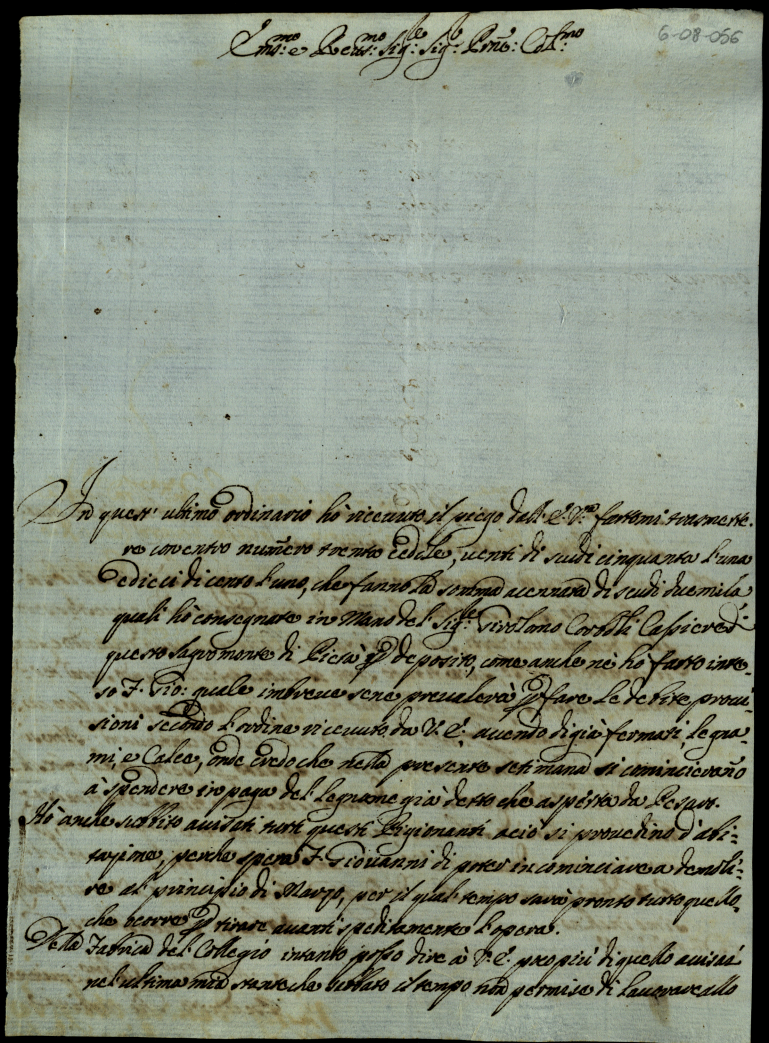 6-08-056
Em.mo e Reu.mo Sig.re Sig.re Prñe: Col.mo
In quest' ultimo ordinario hò riceuuto il piego dall' E. V.ra fattomi trasmette-
re coventro numero trenta cedule, uenti di scudi cinquanta l'una
e dieci di cento l'uno, che fanno la somma accennata di scudi duemila
quali hò consegnate in Mano del Sig.re Girolamo Cassiere di
questo sagro monte di Pietà p deposito, come anche nè hò fatto inte-
so F. Gio: quale in breue sene preualerà p fare le debite proui-
sioni secondo l'ordine riceuuto da V. E. auendo di già fermati, legna-
mi, e Calce, onde credo che nella presente setimana si comincieranño
à spendere in paga del legname già detto che aspetta da Pesaro.
Hò anche subbito auisati tutti questi Pigionanti aciò si prouedino d'abi-
tazione, perche spera F. Giouanni di poter incominciare a demoli-
re al principio di Marzo, per il qual tempo sarà pronto tutto quello,
che occorre p tirare auanti speditamente l'opera.
Della Fabrica del Collegio intanto posso dire à V. E. di quello auisai
nel ultima mia stante che il tempo non permise di lauorare allo